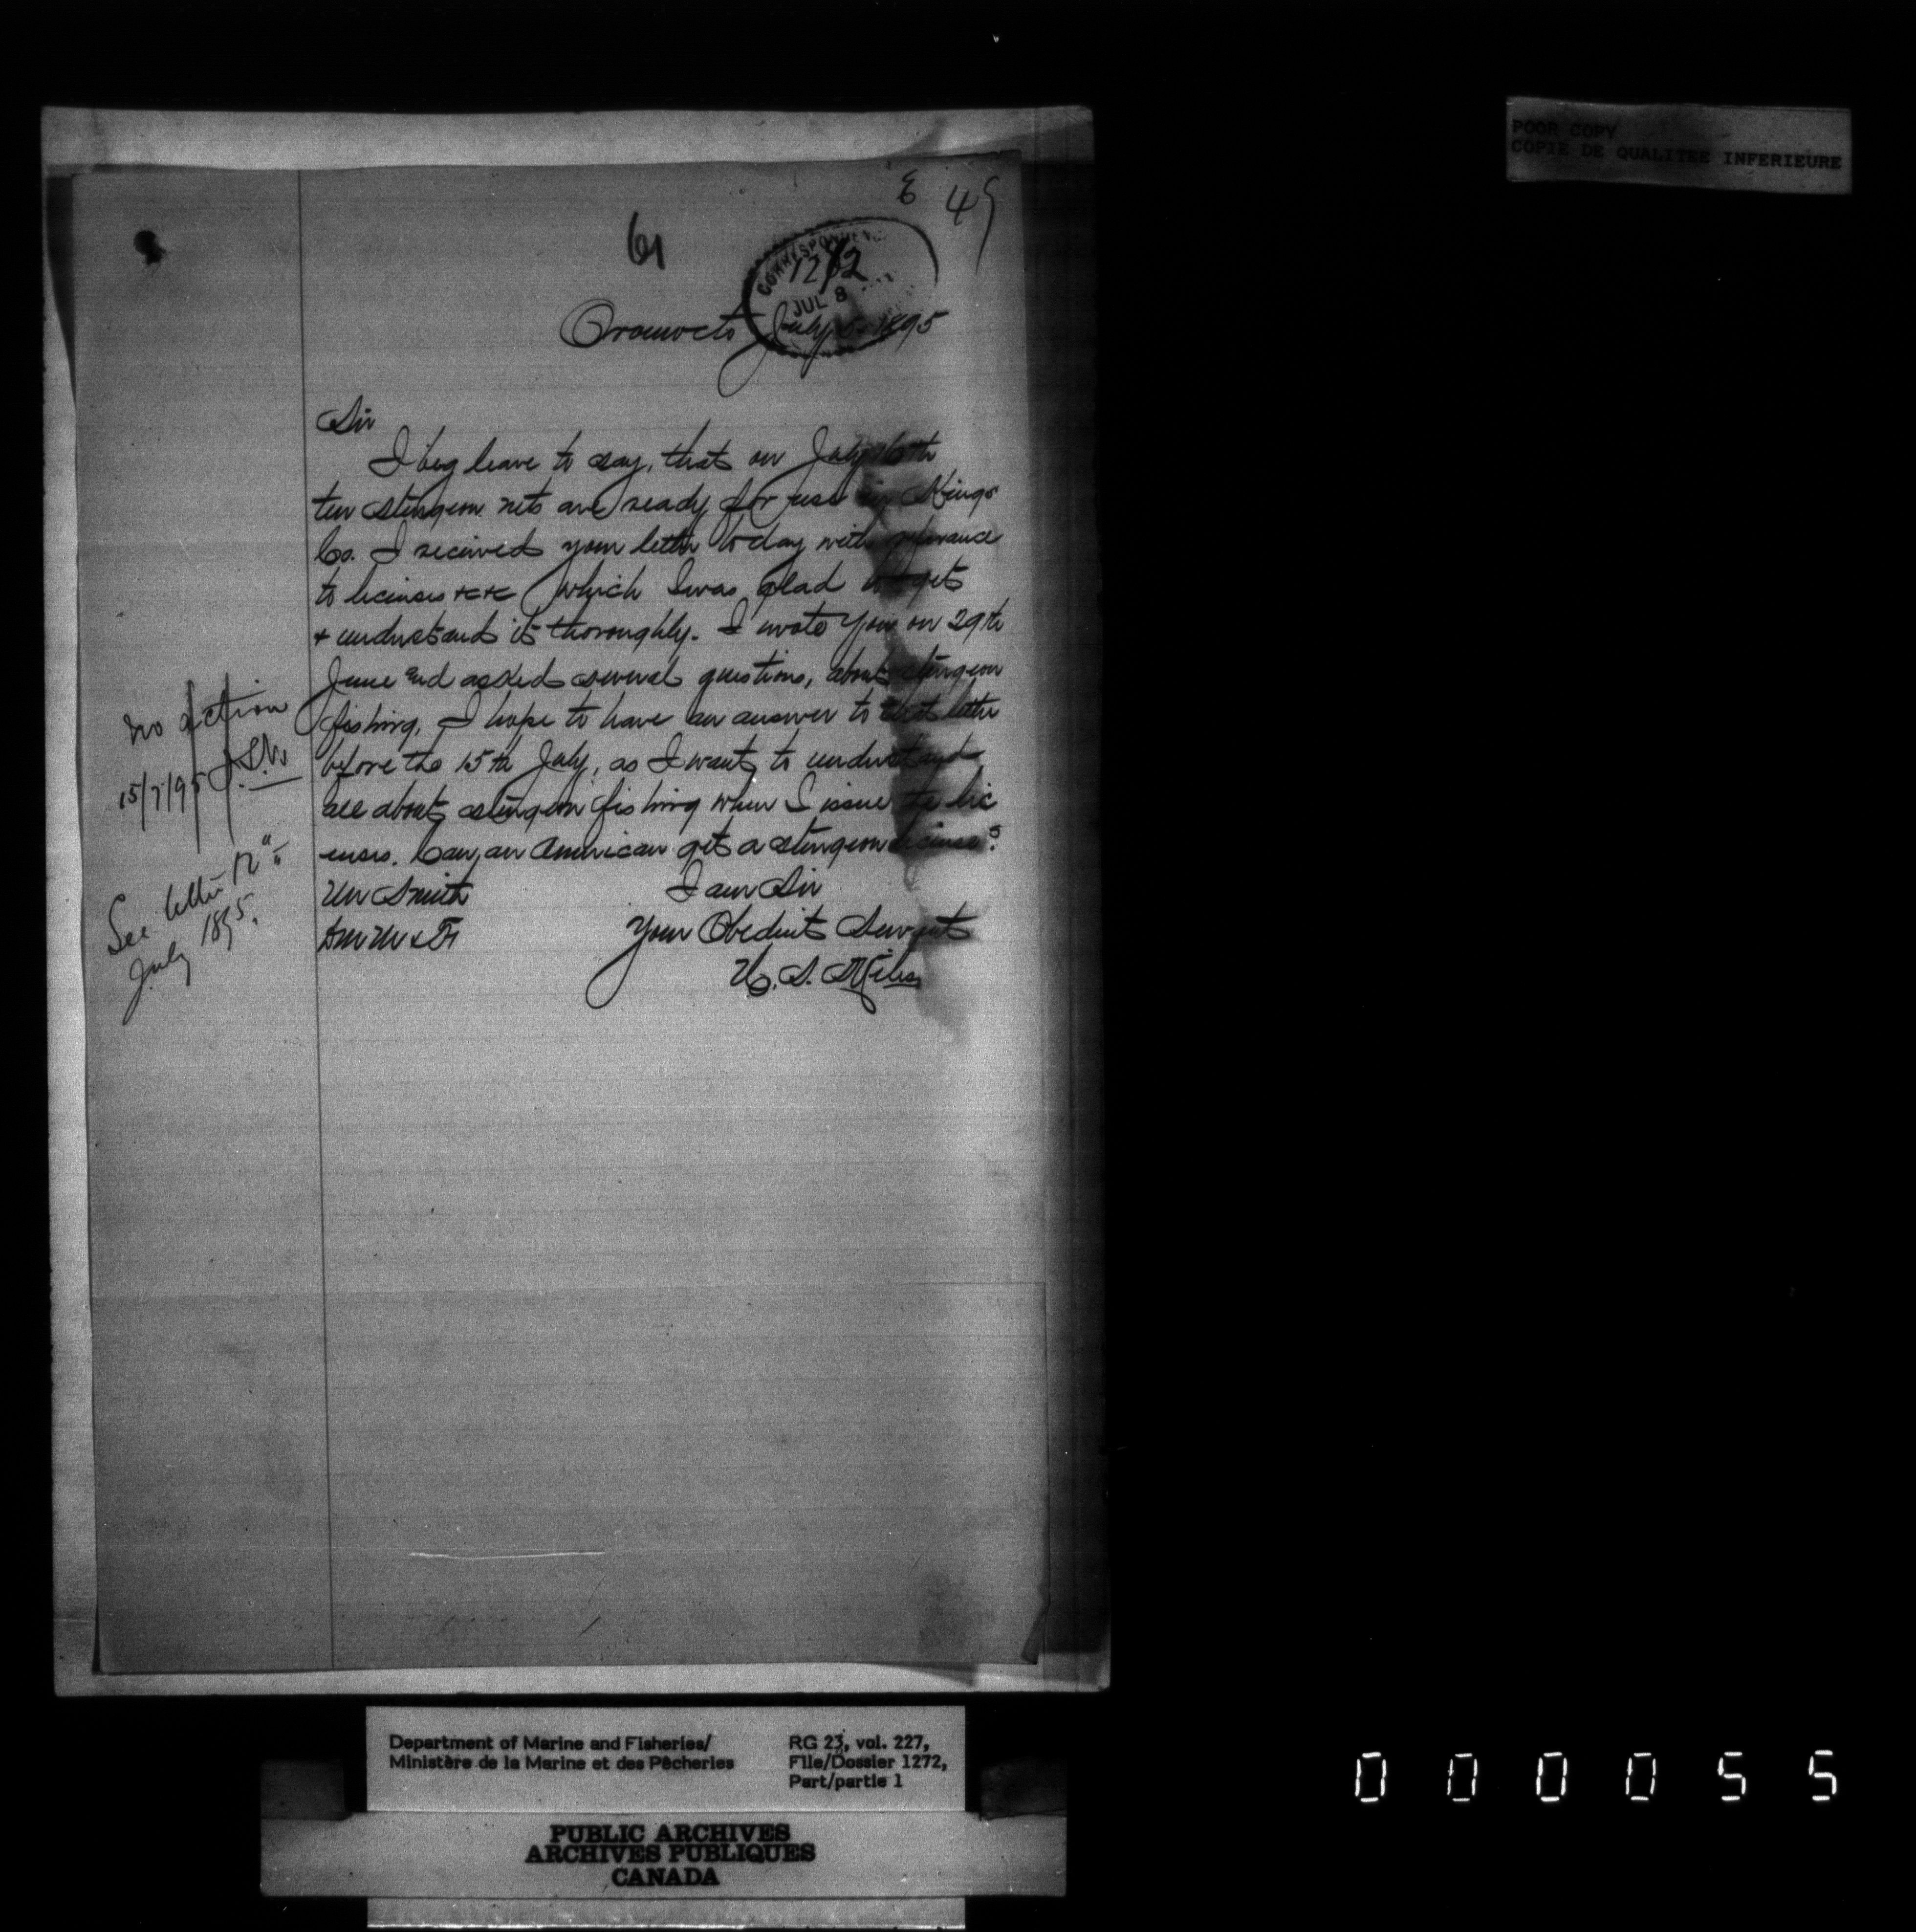 POOR COPY
COPIE DE QUALITEE INFERIEURE
E 49
61
CORRESPONDENCE
1272
JUL 8
Oromocto July 5. 1895
Sir
I beg leave to say, that on July 16th
ten sturgeon nets are ready for use in Kings
Co. I received your letter today with referance
to licenses &c &c which I was glad to get
& understand it thoroughly. I wrote you on 29th
June and asked several questions, about sturgeon
fishing, I hope to have an answer to that letter
before the 15th July, as I want to understand
all about sturgeon fishing when I issue the lic
enses. Can, an American get a sturgeon license?
Mr Smith I am Sir
D M M & F Your Obedient Servant
H. S. Miles
no action
15/7/95
See letter 12"
July 1895.
Department of Marine and Fisheries/
Ministère de la Marine et des Pêcheries
RG 23, vol. 227,
File/Dossier 1272,
Part/partie 1
PUBLIC ARCHIVES
ARCHIVES PUBLIQUES
CANADA
000055